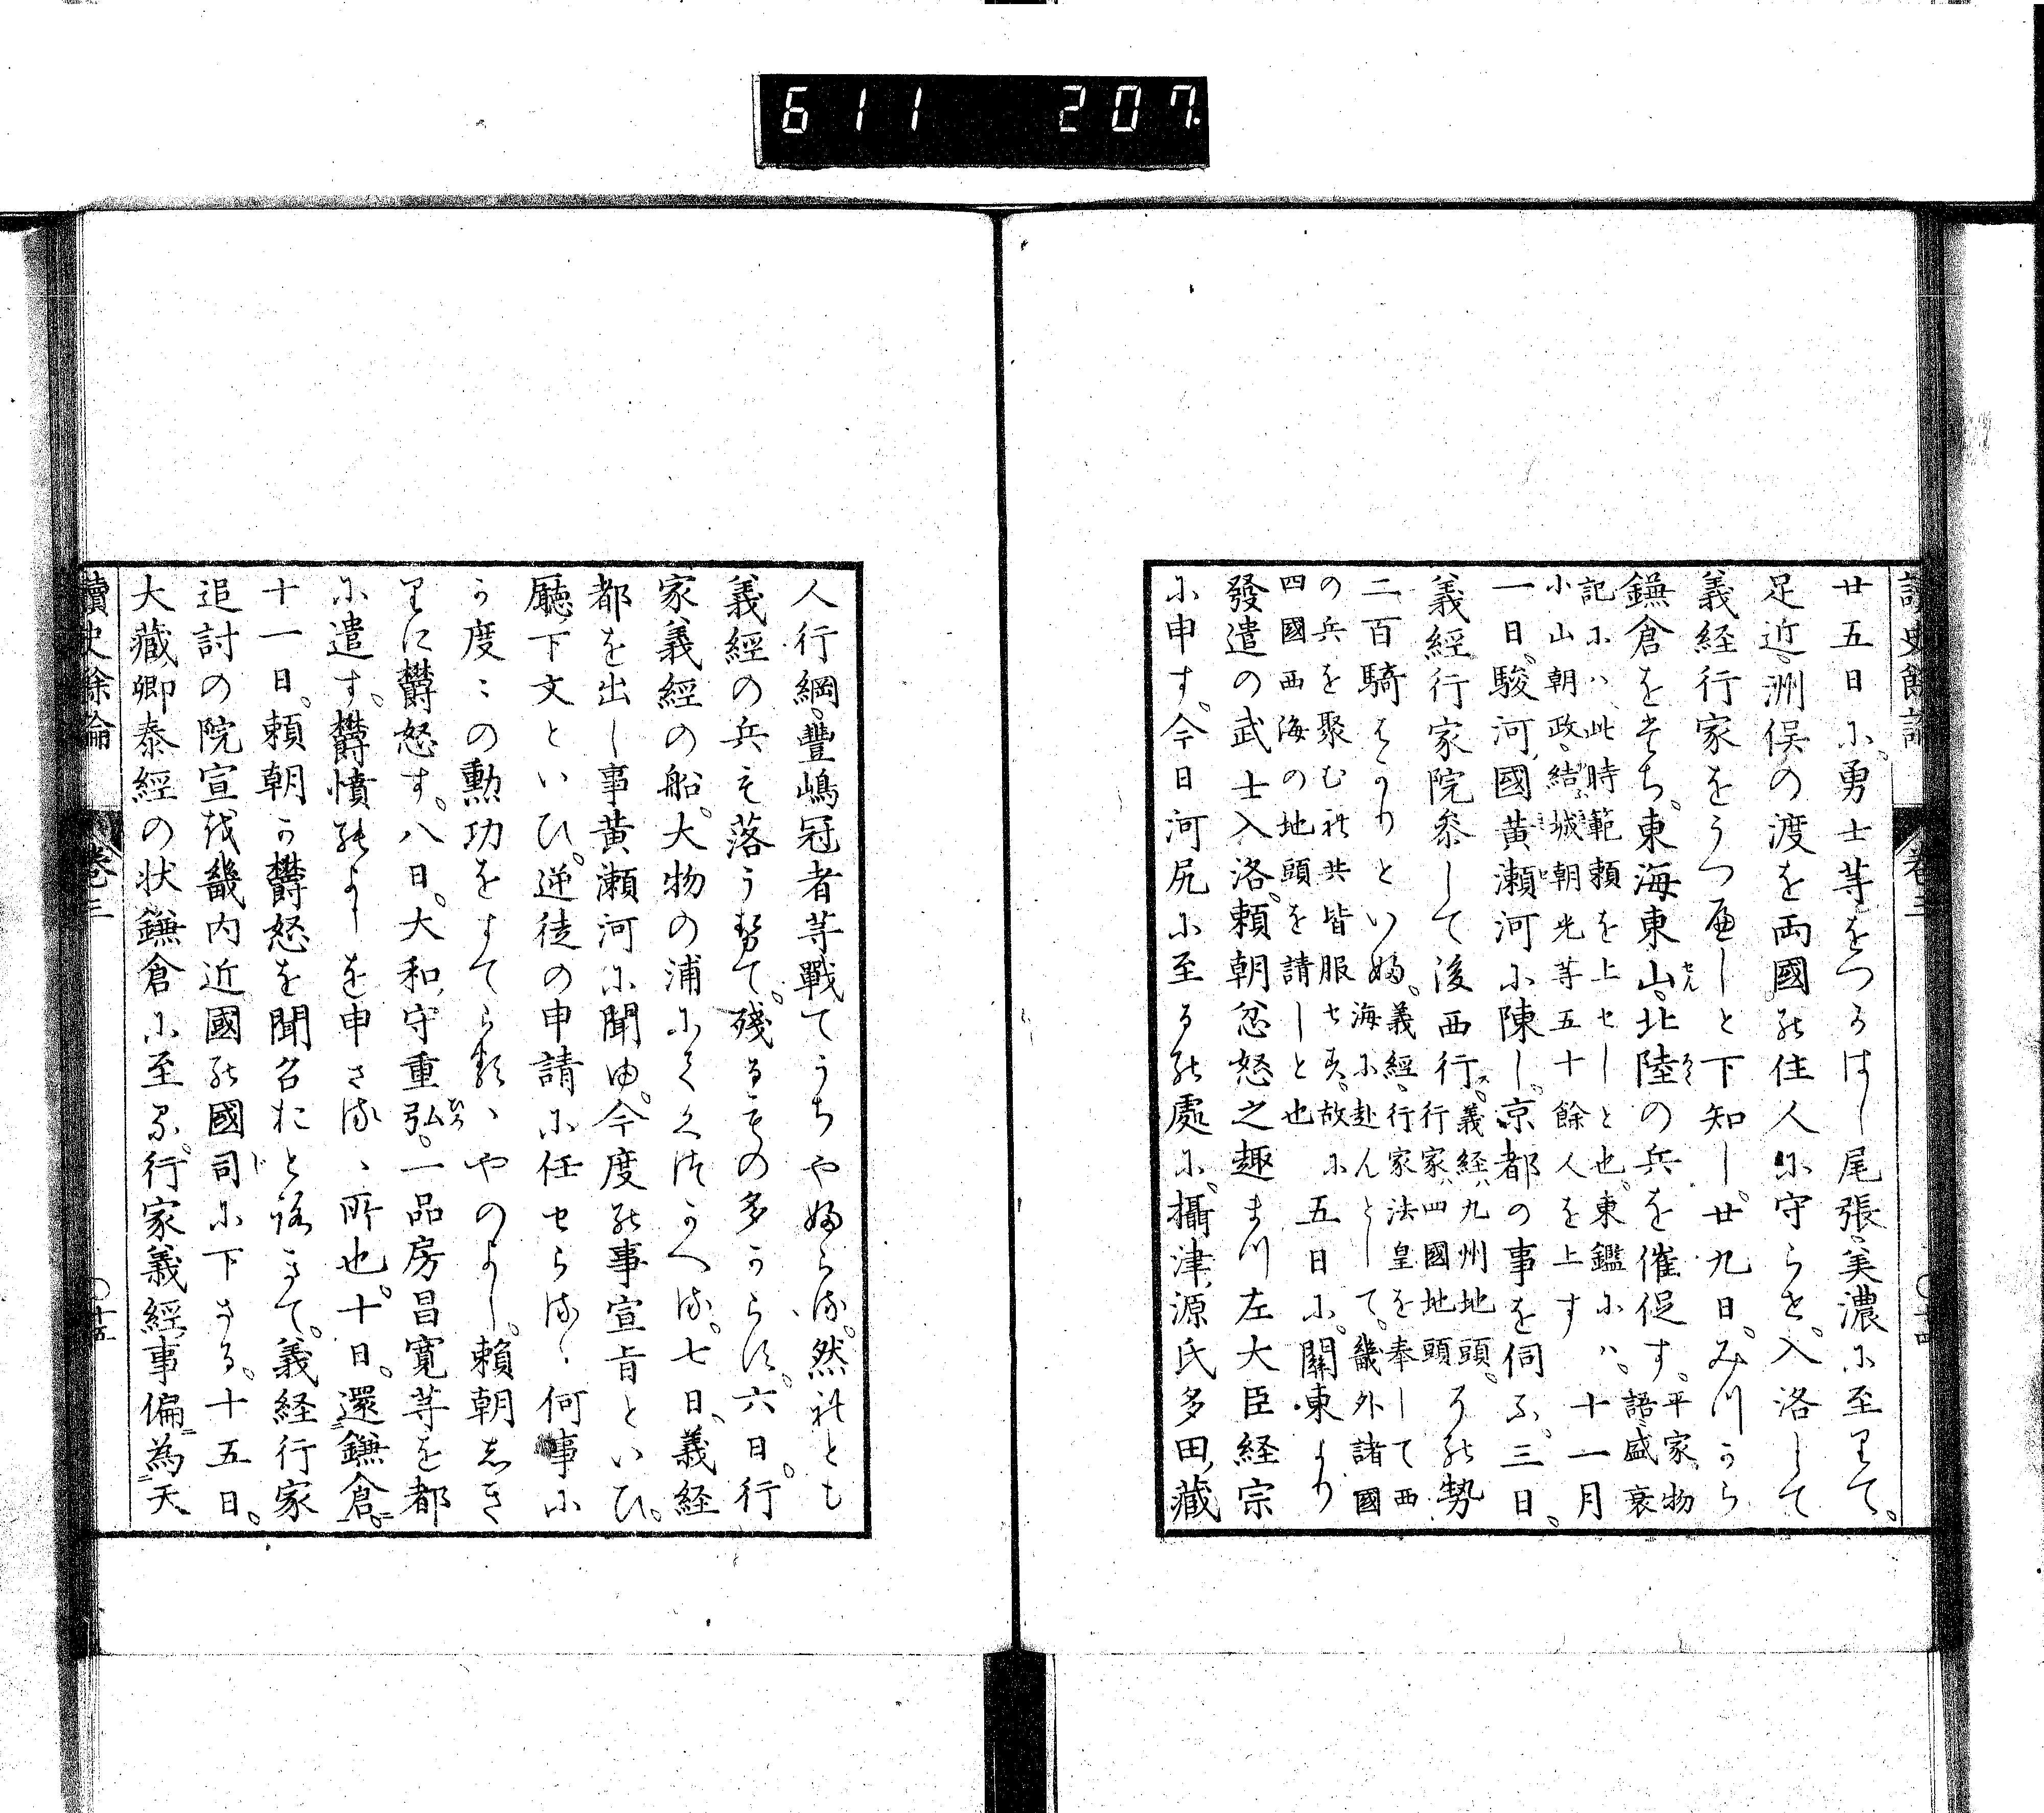 611 207.
讀史餘論 卷三 〇十四
廿五日に。勇士等をつかはし尾張、美濃に至りて。
足近、洲俣の渡を両國の住人に守らせ。入洛して
義経行家をうつへしと下知し。廿九日。みつから
鎌倉をたち。東海東山。北陸の兵を催促す。平家物
語、盛衰
記にハ、此時範頼を上セしと也。東鑑にハ。
小山朝政、結城朝光等五十餘人を上す
十一月
一日。駿河、國黄瀬河に陳し。京都の事を伺ふ。三日。
義經行家院参して後西行ス。義経、九州地頭。
行家、四國地頭
その勢
二百騎はかりといふ。義經、行家法皇を奉して西
海に赴んとして。畿外諸國
の兵を聚むれ共皆服せす。故に
四國西海の地頭を請しと也
五日に。關東より
發遣の武士入洛。頼朝忿怒之趣まつ左大臣経宗
に申す。今日河尻に至るの處に。攝津、源氏多田、藏
人行綱。豊嶋冠者等戰てうちやふらる。然れとも
義經の兵も落うせて。殘るもの多からす。六日。行
家義經の船。大物の浦にてくつかへる。七日、義経
都を出し事黄瀬河に聞ゆ。今度の事宣旨といひ。
廳、下文といひ。逆徒の申請に任せらるゝ何事に
か度々の勲功をすてらるゝやのよし。頼朝しき
りに欝怒す。八日。大和、守重弘。一品房昌寛等を都
に遣す。欝憤のよしを申さるゝ所也。十日。還鎌倉。
十一日。頼朝か欝怒を聞召おとろきて。義経行家
追討の院宣を畿内近國の國司に下さる。十五日。
大藏卿泰經の状鎌倉に至る。行家義經事偏為天
讀史餘論 卷三 〇十五